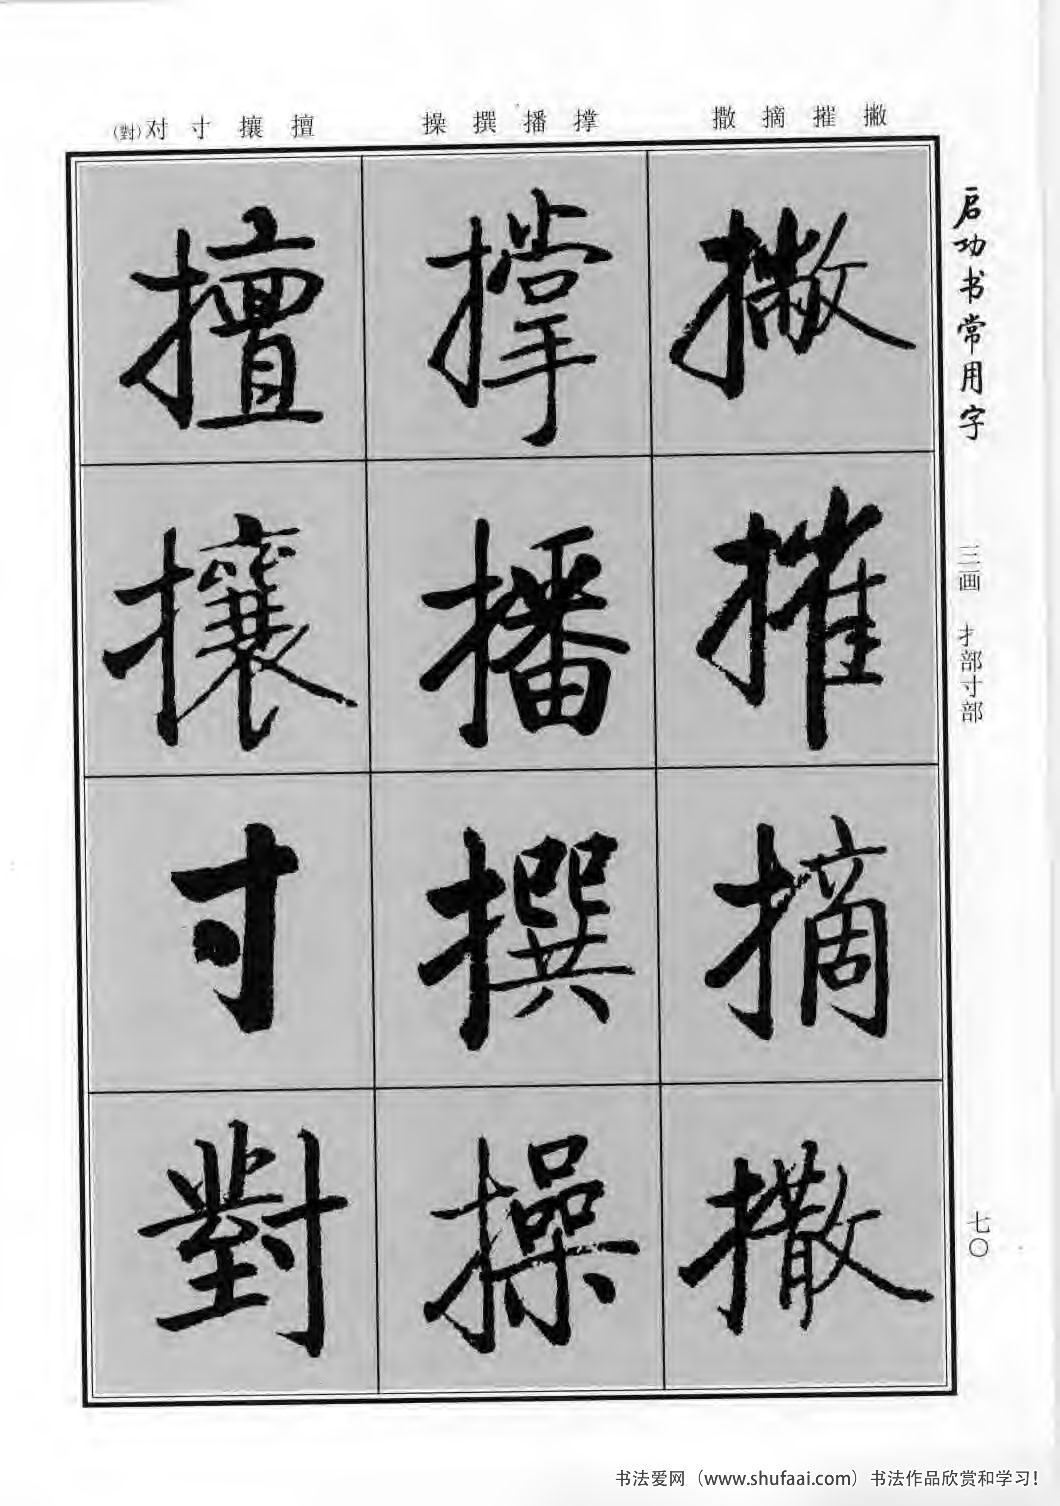 启功书常用字
三画 扌部寸部
七〇
撇 摧 摘 撒
撑 播 撰 操
擅 攘 寸 对(對)
撇
摧
摘
撒
撑
播
撰
操
擅
攘
寸
對
书法爱网（www.shufaai.com）书法作品欣赏和学习！